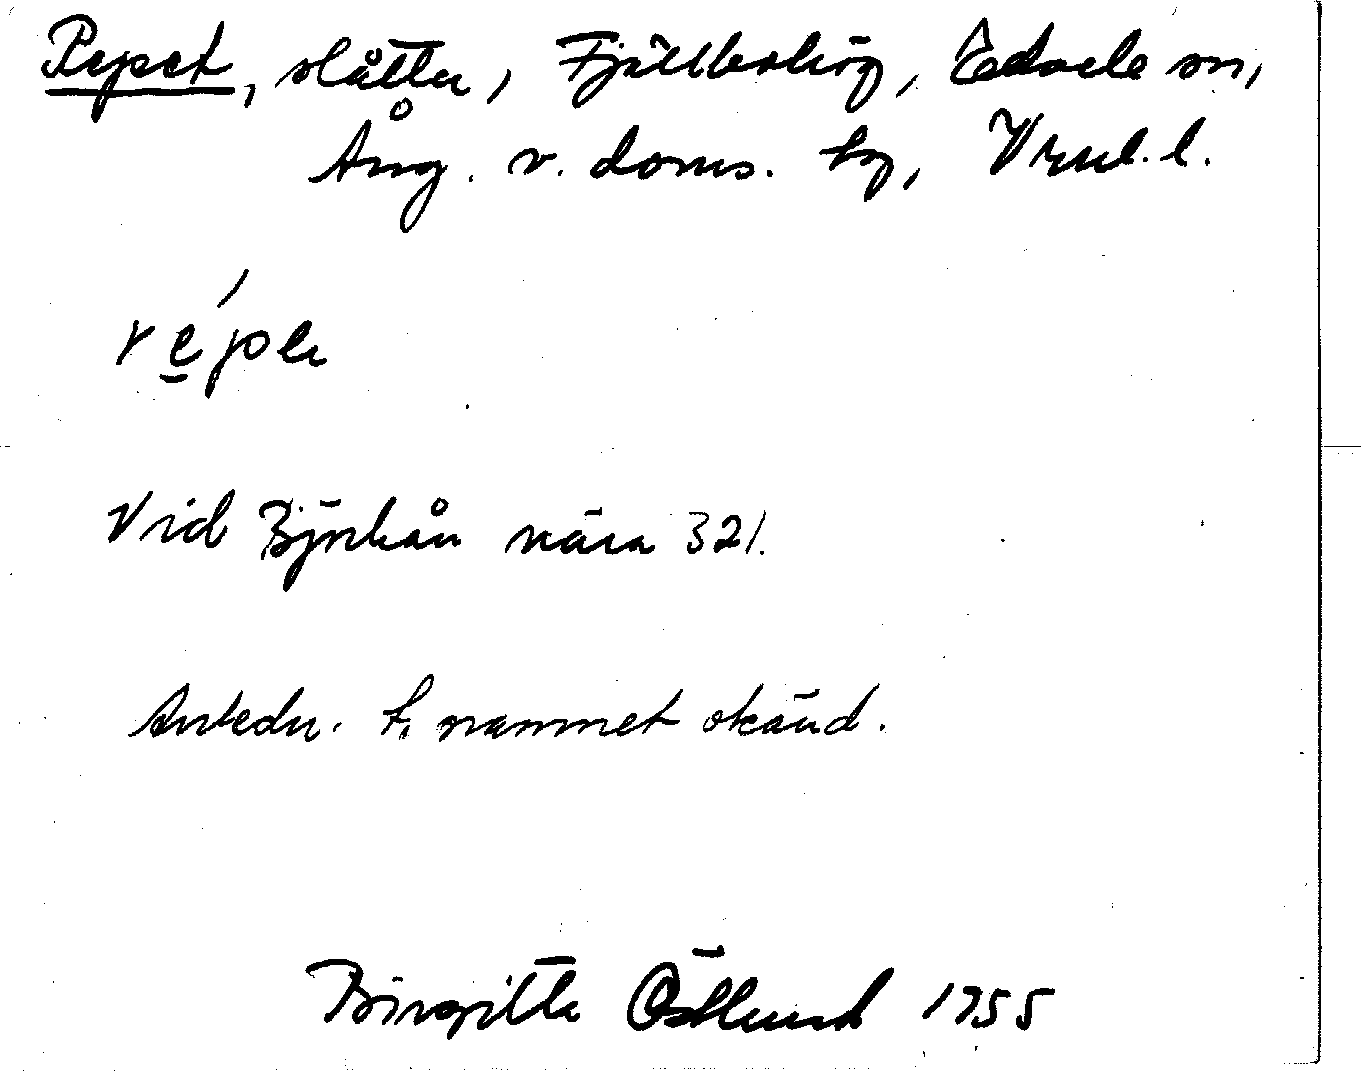 Repet, slåtter, Fjällbohög, Edsele sn,
Ång. v. doms. hg, Vnl. l.
répe
Vid Björkån nära 321.
Anledn. t. namnet okänd.
Birgitta Östlund 1955